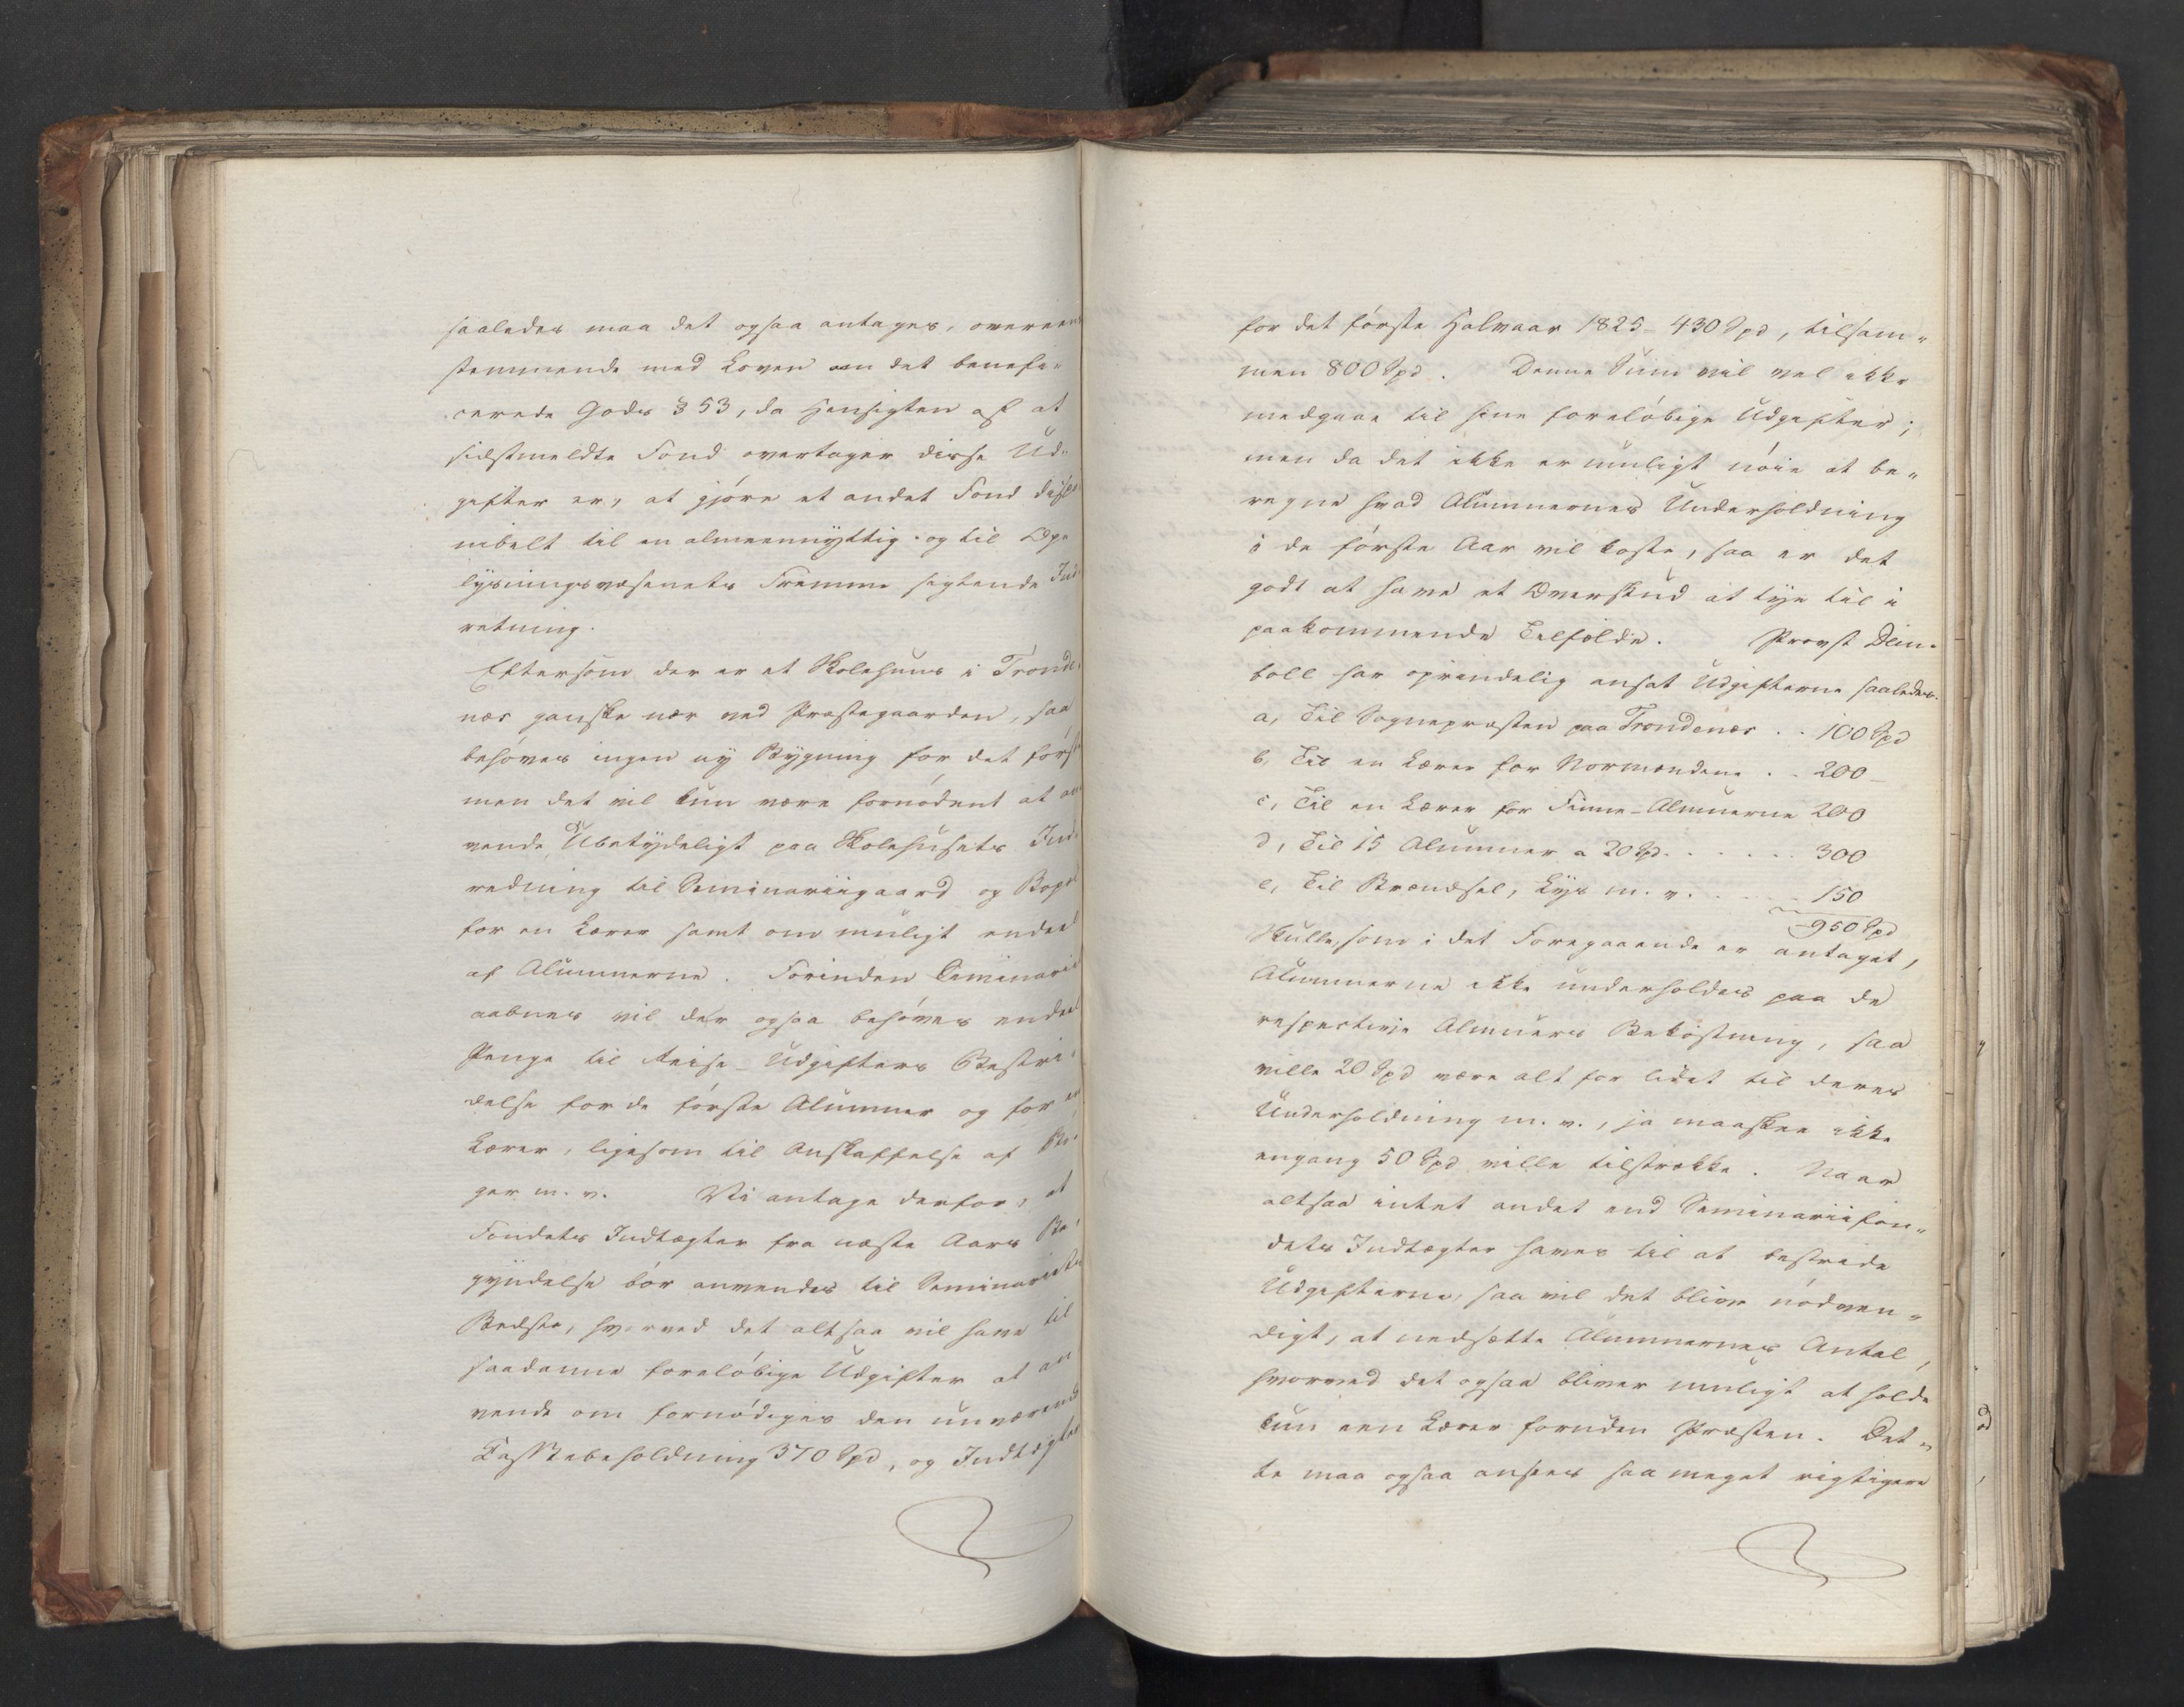 saaledes maa det ogsaa antages, overeens
stemmende med Loven om det benefi-
cerede Gods § 53, da Hensigten af at
sidstmeldte Fond overtager disse Ud-
gifter er, at gjøre et andet Fond dispo
nibelt til en almeennyttig og til Op-
lysningsvæsenets Fremme sigtende Ind-
retning.
Eftersom der er et Skolehuus i Tronde-
nes ganske nær ved Præstegaarden, saa
behøves ingen ny Bygning for det først
men det vil kun være fornødent at an
vende Ubetydeligt paa Skolehusets Ind-
redning til Seminariigaard og Bopæl
for en Lærer samt om muligt endeel
af Alumnerne. Forinden Seminariet
aabnes vil der ogsaa behøves endeel
Penge til Reise-Udgifters Bestri-
delse for de første Alumner og for en
Lærer, ligesom til Anskaffelse af Bø-
ger m. v. Vi antage derfor, at
Fondets Indtægter fra næste Aars Be-
gyndelse bør anvendes til Seminariets
Bedste, hvorved det altsaa vil have til
saadanne foreløbige Udgifter at an
vende om fornødiges den nuværende
Kassebeholdning 370 Spd, og Indtægter
for det første Halvaar 1825 - 430 Spd, tilsam-
men 800 Spd. Denne Sum vil vel ikke
medgaae til hine foreløbige Udgifter;
men da det ikke er muligt nøie at be-
regne hvad Alumnernes Underholdning
i de første Aar vil koste, saa er det
godt at have et Overskud at tye til i
paakommende Tilfælde. Provst Dein-
boll har oprindelig ansat Udgifterne saaledes.
a, Til Sognepræsten paa Trondenes . . 100 Spd
b, Til en Lærer for Normændene . . 200 -
c, Til en Lærer for Finne-Almuerne 200
d, Til 15 Alumner a 20 Spd. . . . . . 300
e, Til Brændsel, Lys m. v. . . . . . 150
950 Spd
Skulle, som i det Foregaaende er antaget,
Alumnerne ikke underholdes paa de
respective Almuers Bekostning, saa
ville 20 Spd være alt for lidet til deres
Underholdning m. v., ja maaskee ikke
engang 50 Spd ville tilstrække. Naar
altsaa intet andet end Seminariifon-
dets Indtægter haves til at bestride
Udgifterne, saa vil det blive nødven-
digt, at nedsætte Alumnernes Antal,
hvorved det ogsaa bliver muligt at holde
kun een Lærer foruden Præsten. Det-
te maa ogsaa ansees saa meget rigtigere